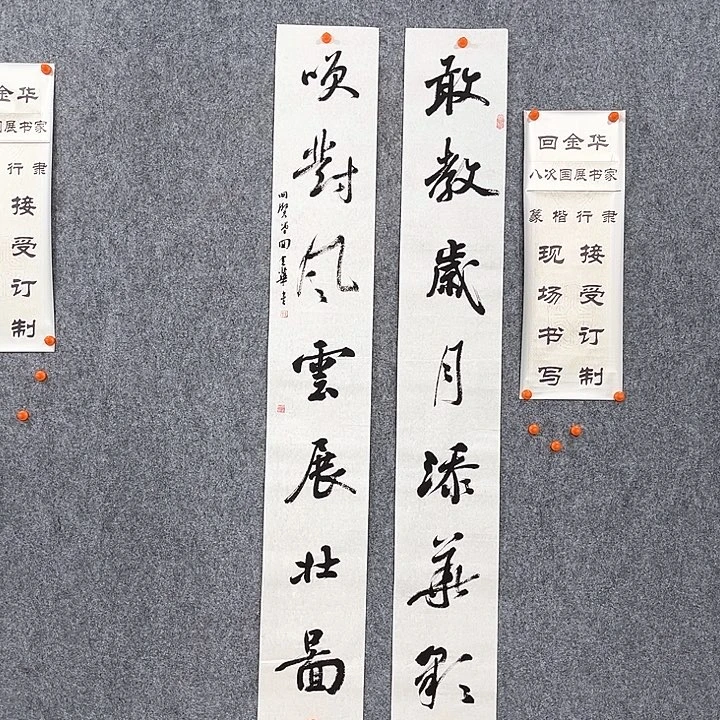 敢教歲月添華彩
咲對風雲展壯圖
回金華
回金华
八次国展书家
篆楷行隶
现场书写
接受订制
金华
国展书家
行隶
接受订制